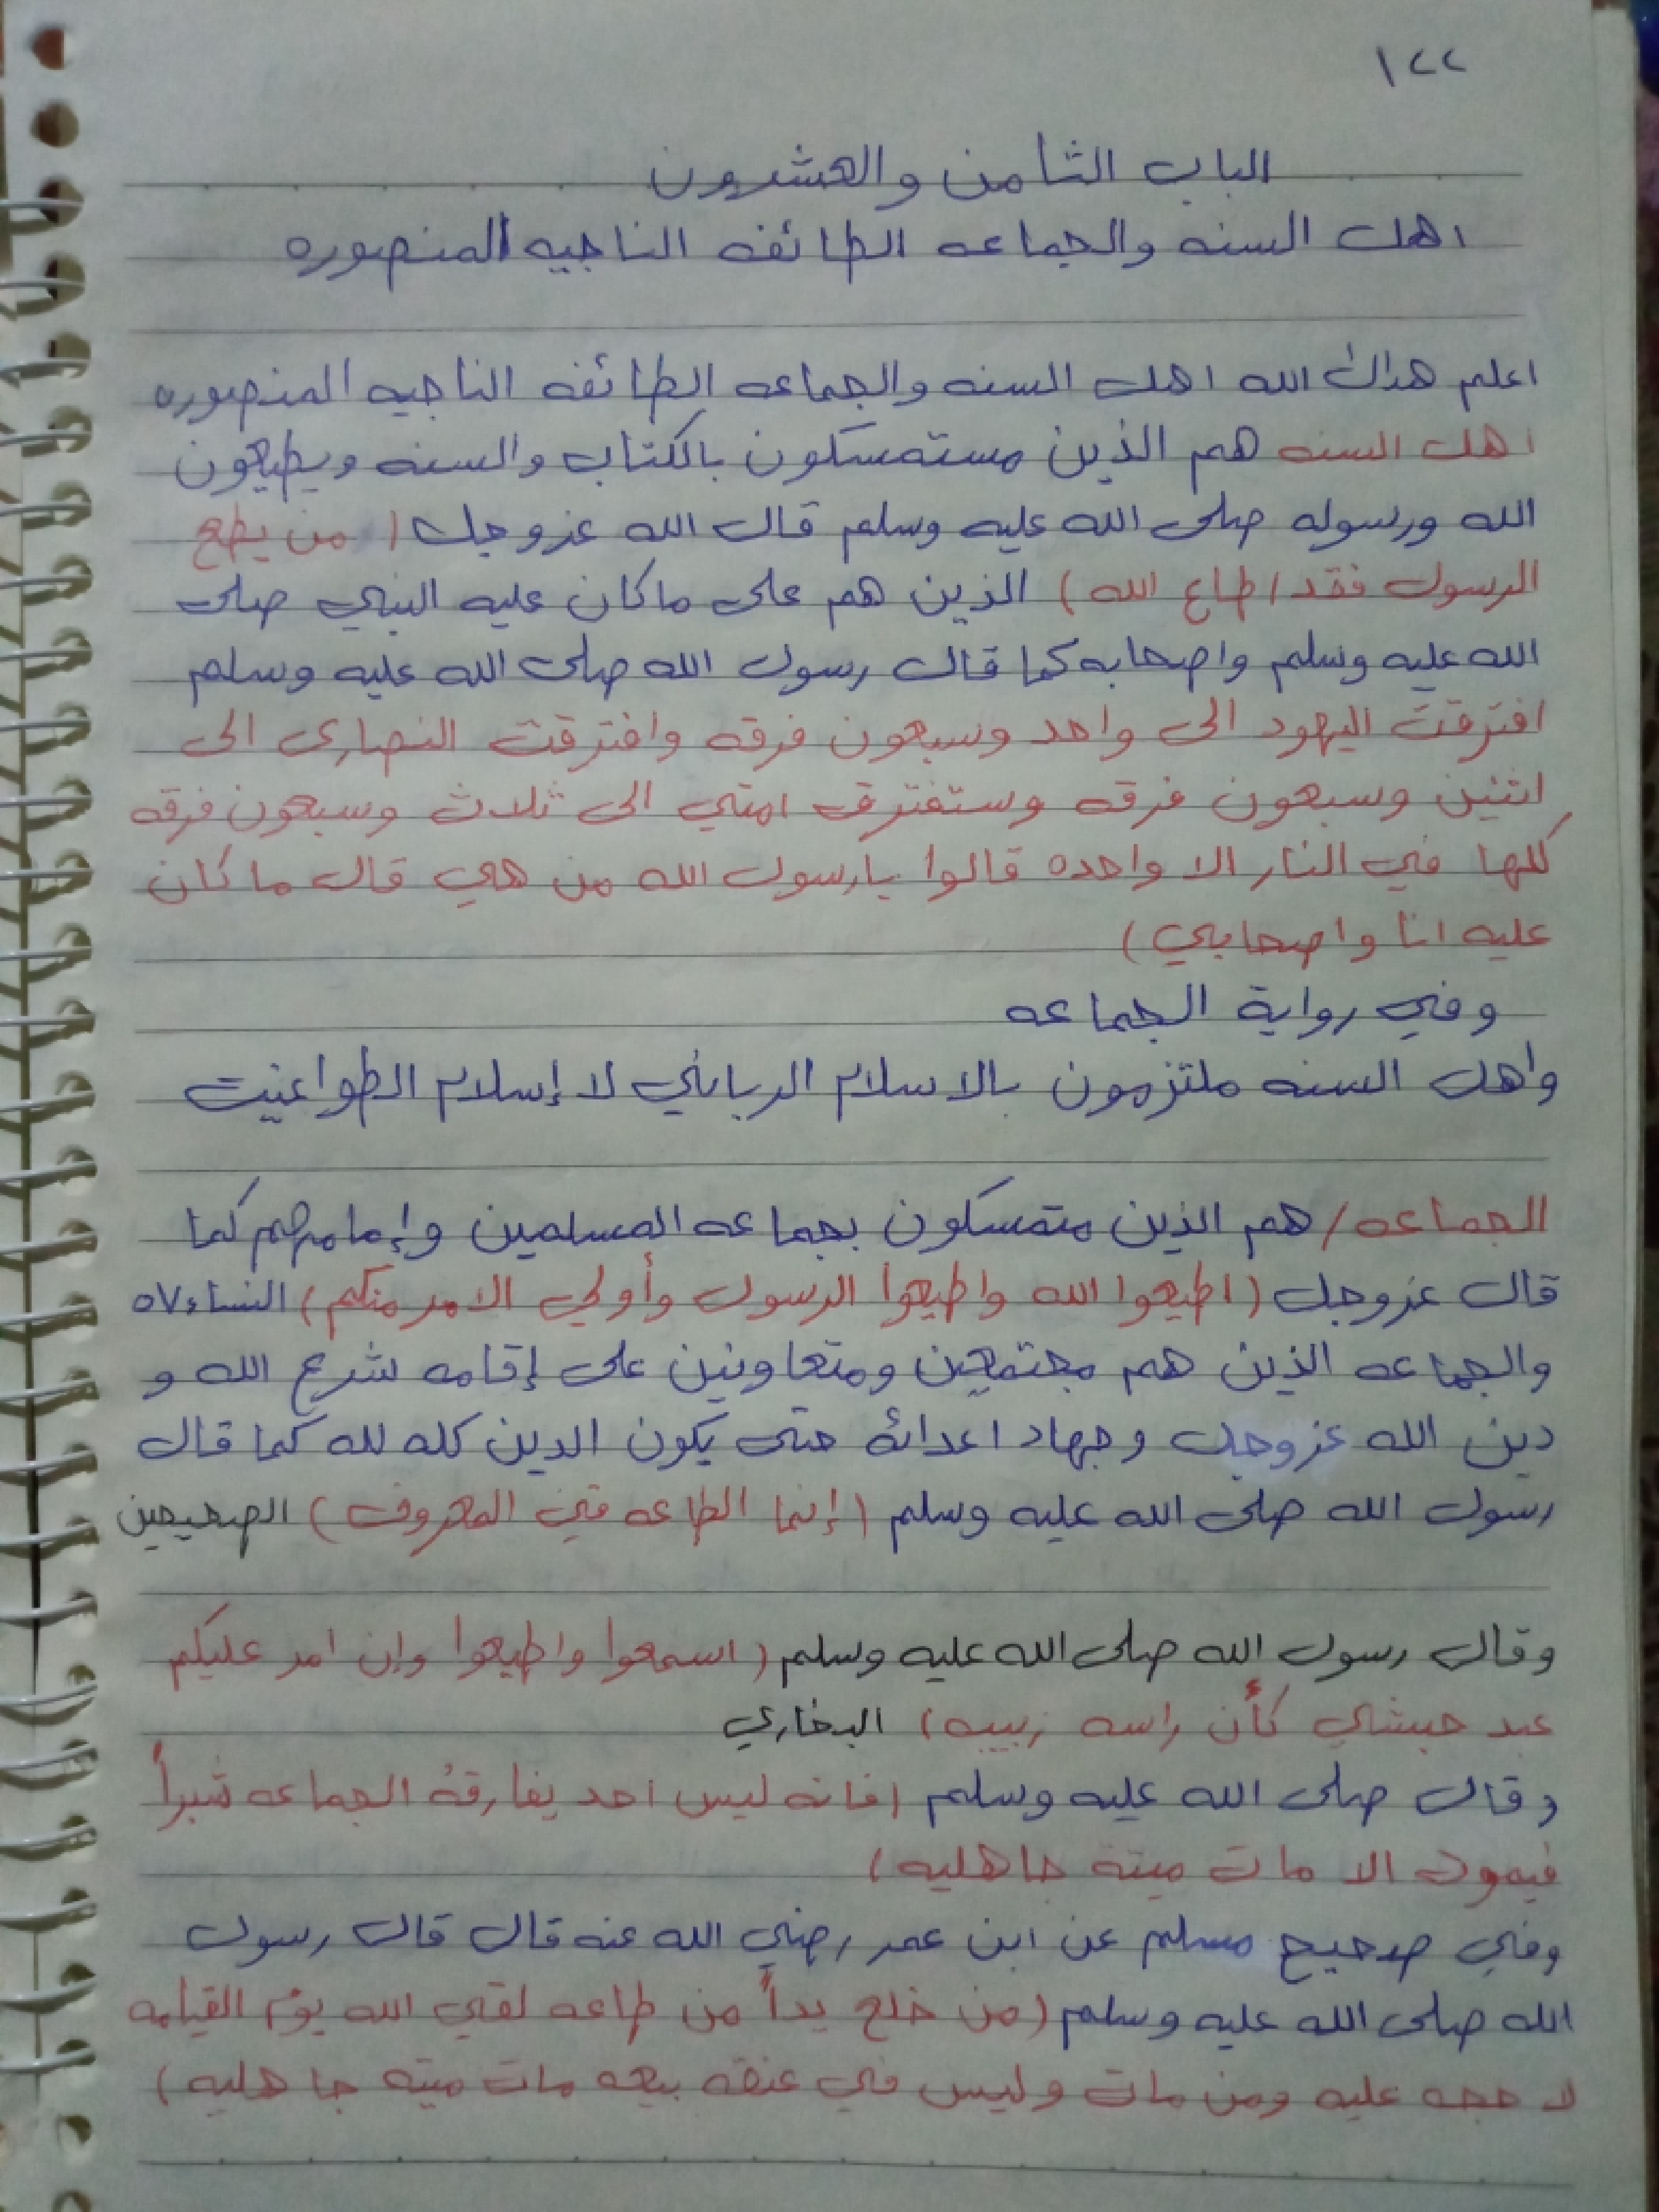 ١٢٢
الباب الثامن والعشرون
اهل السنه والجماعه الطائفه الناجيه المنصوره
اعلم هداك الله اهل السنه والجماعه الطائفه الناجيه المنصوره
اهل السنه هم الذين مستمسكون بالكتاب والسنه ويطيعون
الله ورسوله صلى الله عليه وسلم قال الله عزوجل ( من يطع
الرسول فقد اطاع الله ) الذين هم على ماكان عليه النبي صلى
الله عليه وسلم واصحابه كما قال رسول الله صلى الله عليه وسلم
افترقت اليهود الى واحد وسبعون فرقه وافترقت النصارى الى
اثنين وسبعون فرقه وستفترق امتي الى ثلاث وسبعون فرقه
كلها في النار الا واحده قالوا يارسول الله من هي قال ما كان
عليه انا واصحابي )
وفي رواية الجماعه
واهل السنه ملتزمون بالاسلام الرباني لا إسلام الطواغيت
الجماعه / هم الذين متمسكون بجماعه المسلمين وإمامهم كما
قال عزوجل ( اطيعوا الله واطيعوا الرسول وأولي الامر منكم ) النساء ٥٧
والجماعه الذين هم مجتمعين ومتعاونين على إقامه شرع الله و
دين الله عزوجل وجهاد اعدائة حتى يكون الدين كله لله كما قال
رسول الله صلى الله عليه وسلم ( إنما الطاعه في المعروف ) الصحيحين
وقال رسول الله صلى الله عليه وسلم ( اسمعوا واطيعوا وإن امر عليكم
عبد حبشي كأن راسه زبيبه ) البخاري
وقال صلى الله عليه وسلم ( فانه ليس احد يفارقة الجماعه شبراً
فيموت الا مات ميتة جاهليه )
وفي صحيح مسلم عن ابن عمر رضي الله عنه قال قال رسول
الله صلى الله عليه وسلم ( من خلع يداً من طاعه لقي الله يوم القيامه
لا حجه عليه ومن مات وليس في عنقه بيعه مات ميته جاهليه )